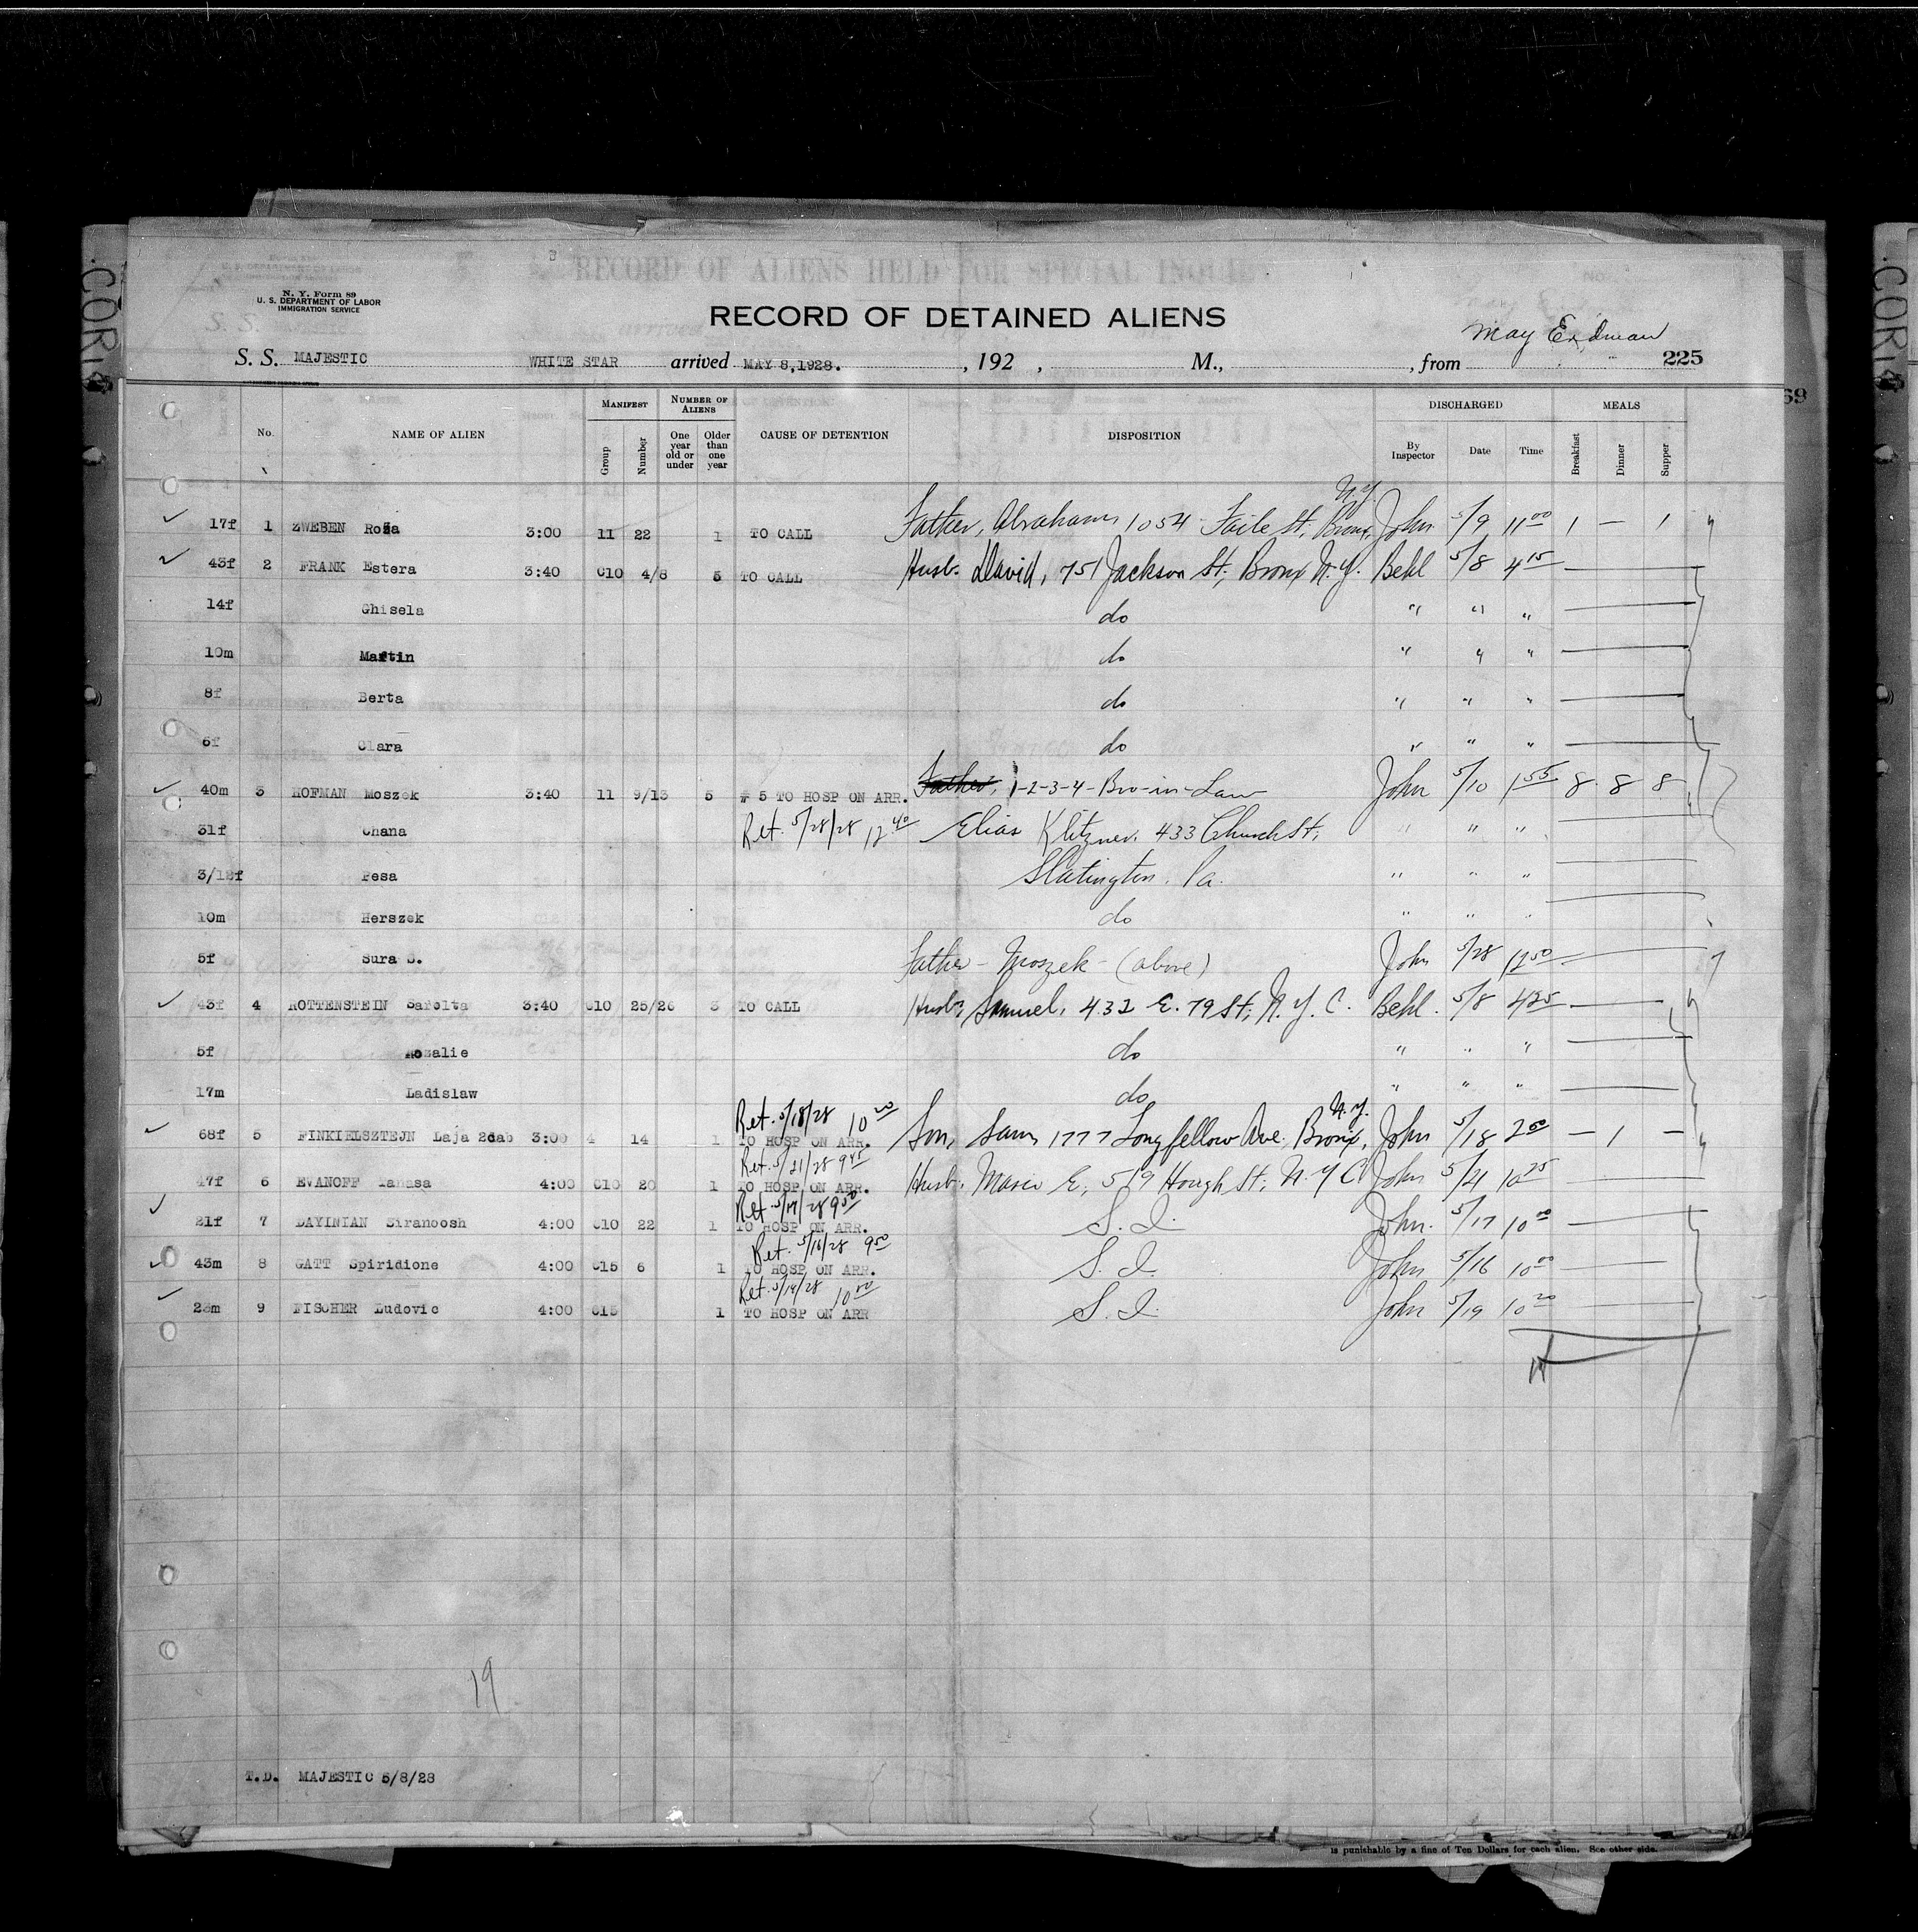 RECORD OF ALIENS HELD FOR SPECIAL INQUIRY
N. Y. Form 89
U. S. DEPARTMENT OF LABOR
IMMIGRATION SERVICE
RECORD OF DETAINED ALIENS
May Erdman
S. S. MAJESTIC WHITE STAR arrived MAY 8,1928. , 192 , M., , from 225
69
MANIFEST NUMBER OF ALIENS DISCHARGED MEALS
No. NAME OF ALIEN Group Number One year old or under Older than one year CAUSE OF DETENTION DISPOSITION By Inspector Date Time Breakfast Dinner Supper
17f 1 ZWEBEN Roza 3:00 11 22 1 TO CALL Father, Abraham, 1054 Faile St, Bronx, N.Y. John 5/9 11 00 1 — 1
43f 2 FRANK Estera 3:40 C10 4/8 5 TO CALL Husb. David, 751 Jackson St, Bronx N.Y. Behl 5/8 4 15
14f Ghisela do " " "
10m Martin do " " "
8f Berta do " " "
6f Clara do " " "
40m 3 HOFMAN Moszek 3:40 11 9/13 5 # 5 TO HOSP ON ARR. Father, 1-2-3-4-Bro-in-Law John 5/10 1 55 8 8 8
31f Chana Ret. 5/28/28 12 40 Elias Klitzner, 433 Church St, " " "
3/12f Pesa Slatington, Pa. " " "
10m Herszek do " " "
5f Sura S. Father - Moszek - (above) John 5/28 12 50
43f 4 ROTTENSTEIN Sarolta 3:40 C10 25/26 3 TO CALL Husb, Samuel, 432 E. 79 St, N.Y.C. Behl. 5/8 4 25
5f Rozalie do " " "
17m Ladislaw do " " "
Ret. 5/18/28 10 20
68f 5 FINKIELSZTEJN Laja 2cab 3:00 4 14 1 TO HOSP ON ARR. Son, Sam, 1777 Longfellow Ave. Bronx, N.Y. John 5/18 2 00 — 1 —
Ret. 5/21/28 9 45
47f 6 EVANOFF Tanasa 4:00 C10 20 1 TO HOSP ON ARR. Husb. E, 519 St, N.Y.C John 5/21 10 25
Ret. 5/17/28 9 50
21f 7 DAYINIAN Siranoosh 4:00 C10 22 1 TO HOSP ON ARR. S. I. John. 5/17 10 00
Ret. 5/16/28 9 50
43m 8 GATT Spiridione 4:00 C15 6 1 TO HOSP ON ARR. S. I. John 5/16 10 00
Ret. 5/19/28 10 00
23m 9 FISCHER Ludovic 4:00 C15 1 TO HOSP ON ARR S. I. John 5/19 10 20
19
T.D. MAJESTIC 5/8/28
is punishable by a fine of Ten Dollars for each alien. See other side.